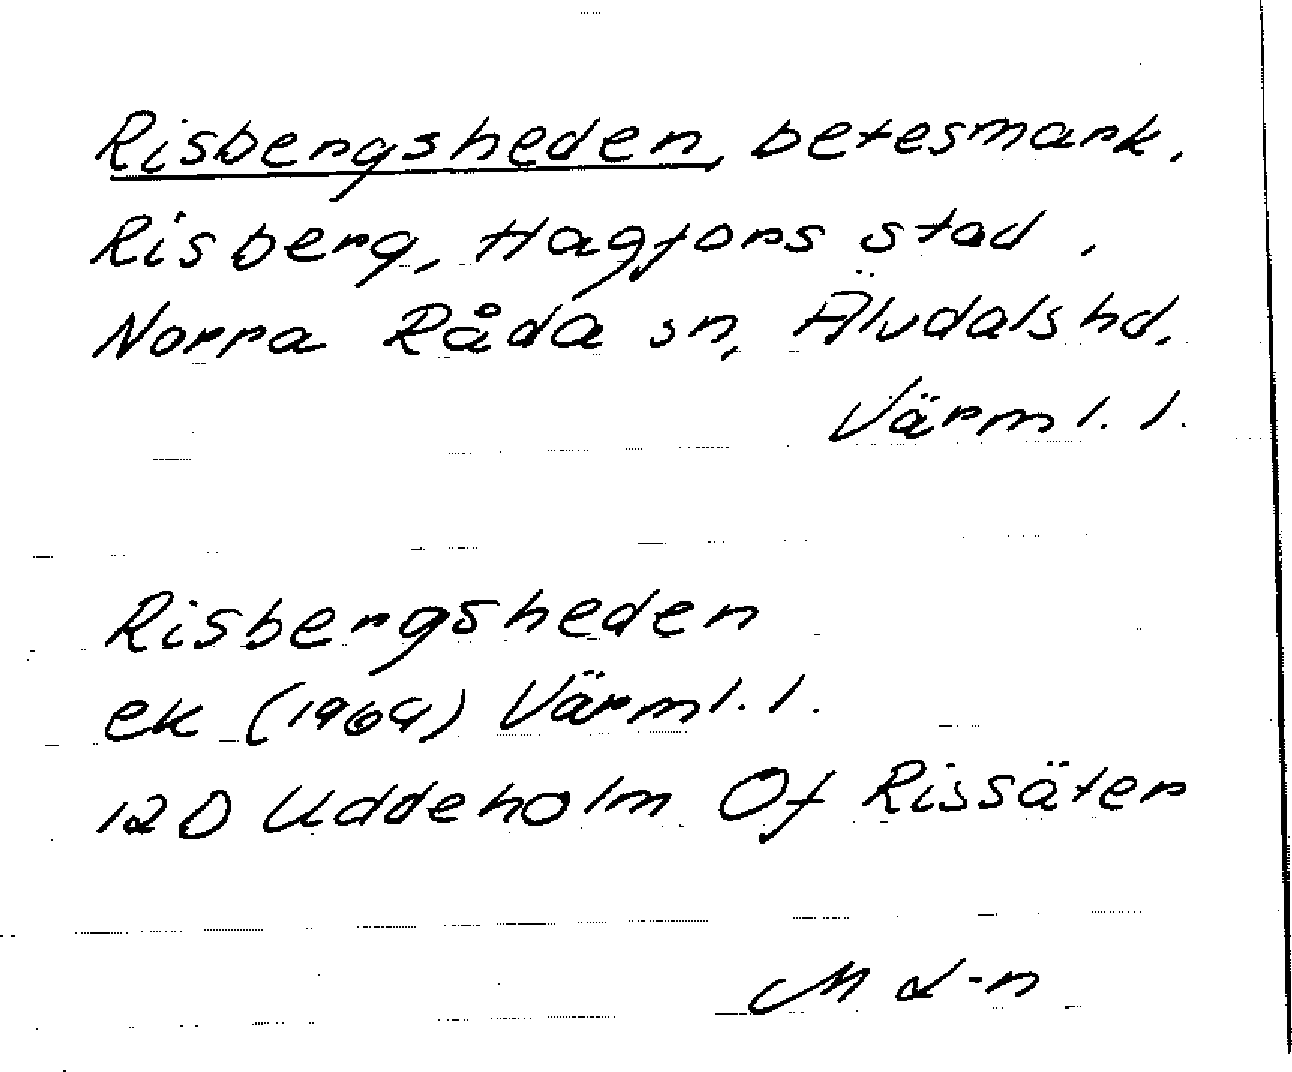 Risbergsheden, betesmark,
Risberg, Hagfors stad,
Norra Råda sn, Älvdals hd,
Värml. l.
Risbergsheden
ek (1964) Värml. l.
12D Uddeholm Of Rissäter
M L-n